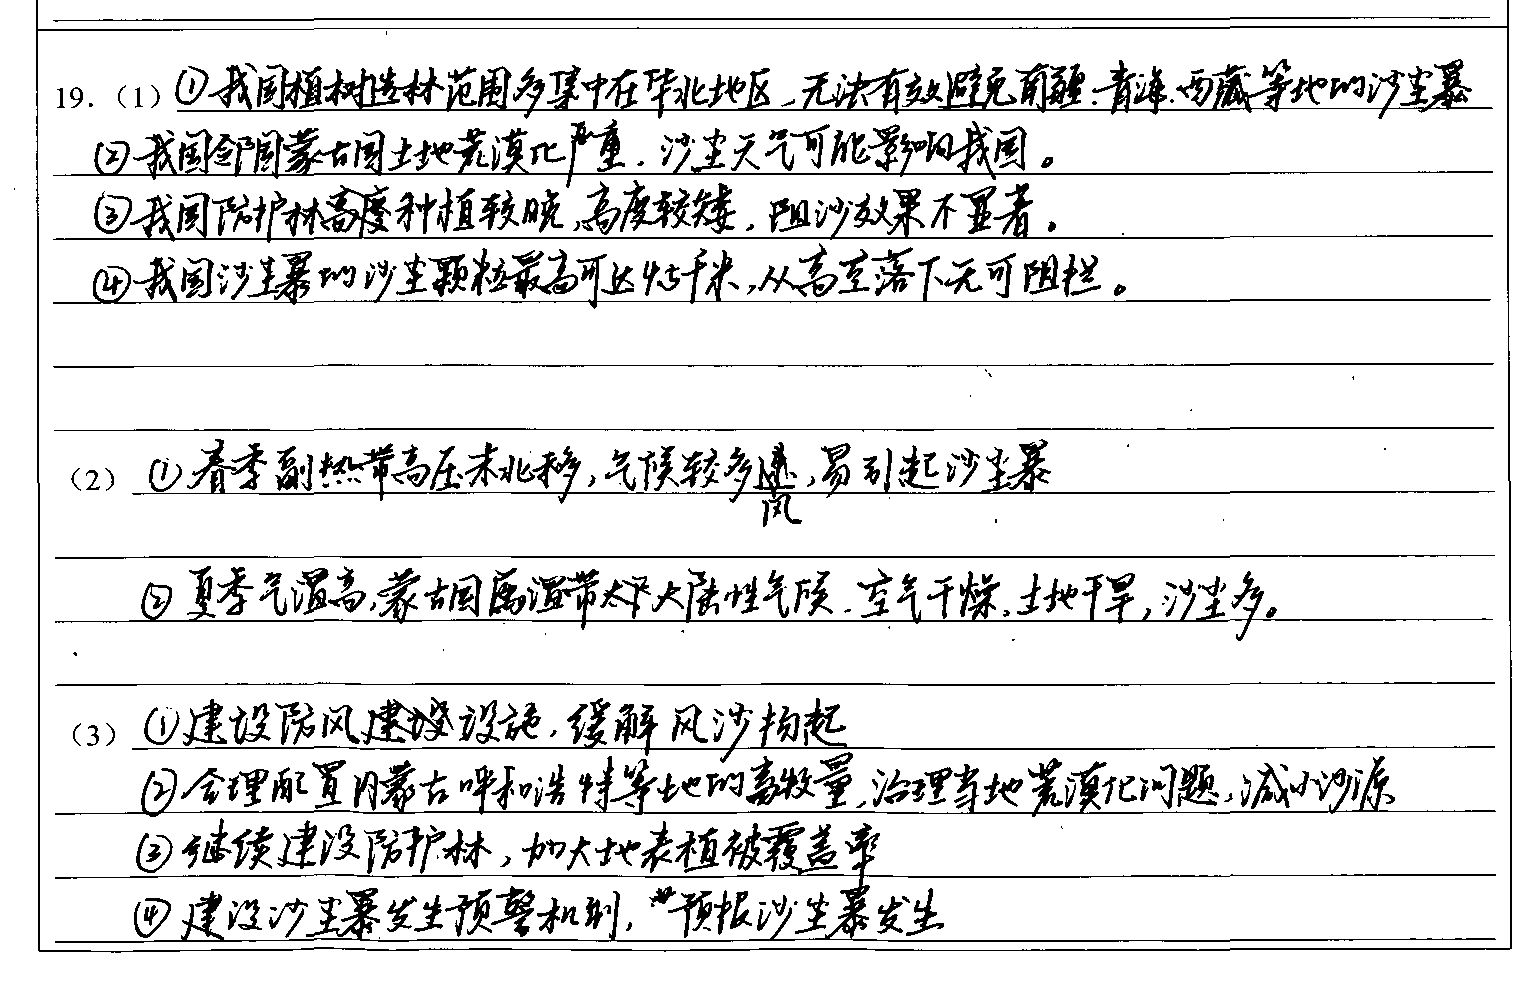 19.（1）①我国植树造林范围多集中在华北地区，无法有效避免南疆、青海、西藏等地的沙尘暴
②我国邻国蒙古国土地荒漠化严重，沙尘天气可能影响我国。
③我国防护林高度种植较晚，高度较矮，阻沙效果不显著。
④我国沙尘暴的沙尘颗粒最高可达4.5千米，从高空落下无可阻拦。
（2）①春季副热带高压未北移，气候较多风，易引起沙尘暴
②夏季气温高，蒙古国属温带大陆性气候，空气干燥，土地干旱，沙尘多。
（3）①建设防风设施，缓解风沙扬起
②合理配置内蒙古呼和浩特等地的畜牧量，治理当地荒漠化问题，减小沙源
③继续建设防护林，加大地表植被覆盖率
④建设沙尘暴发生预警机制，预报沙尘暴发生